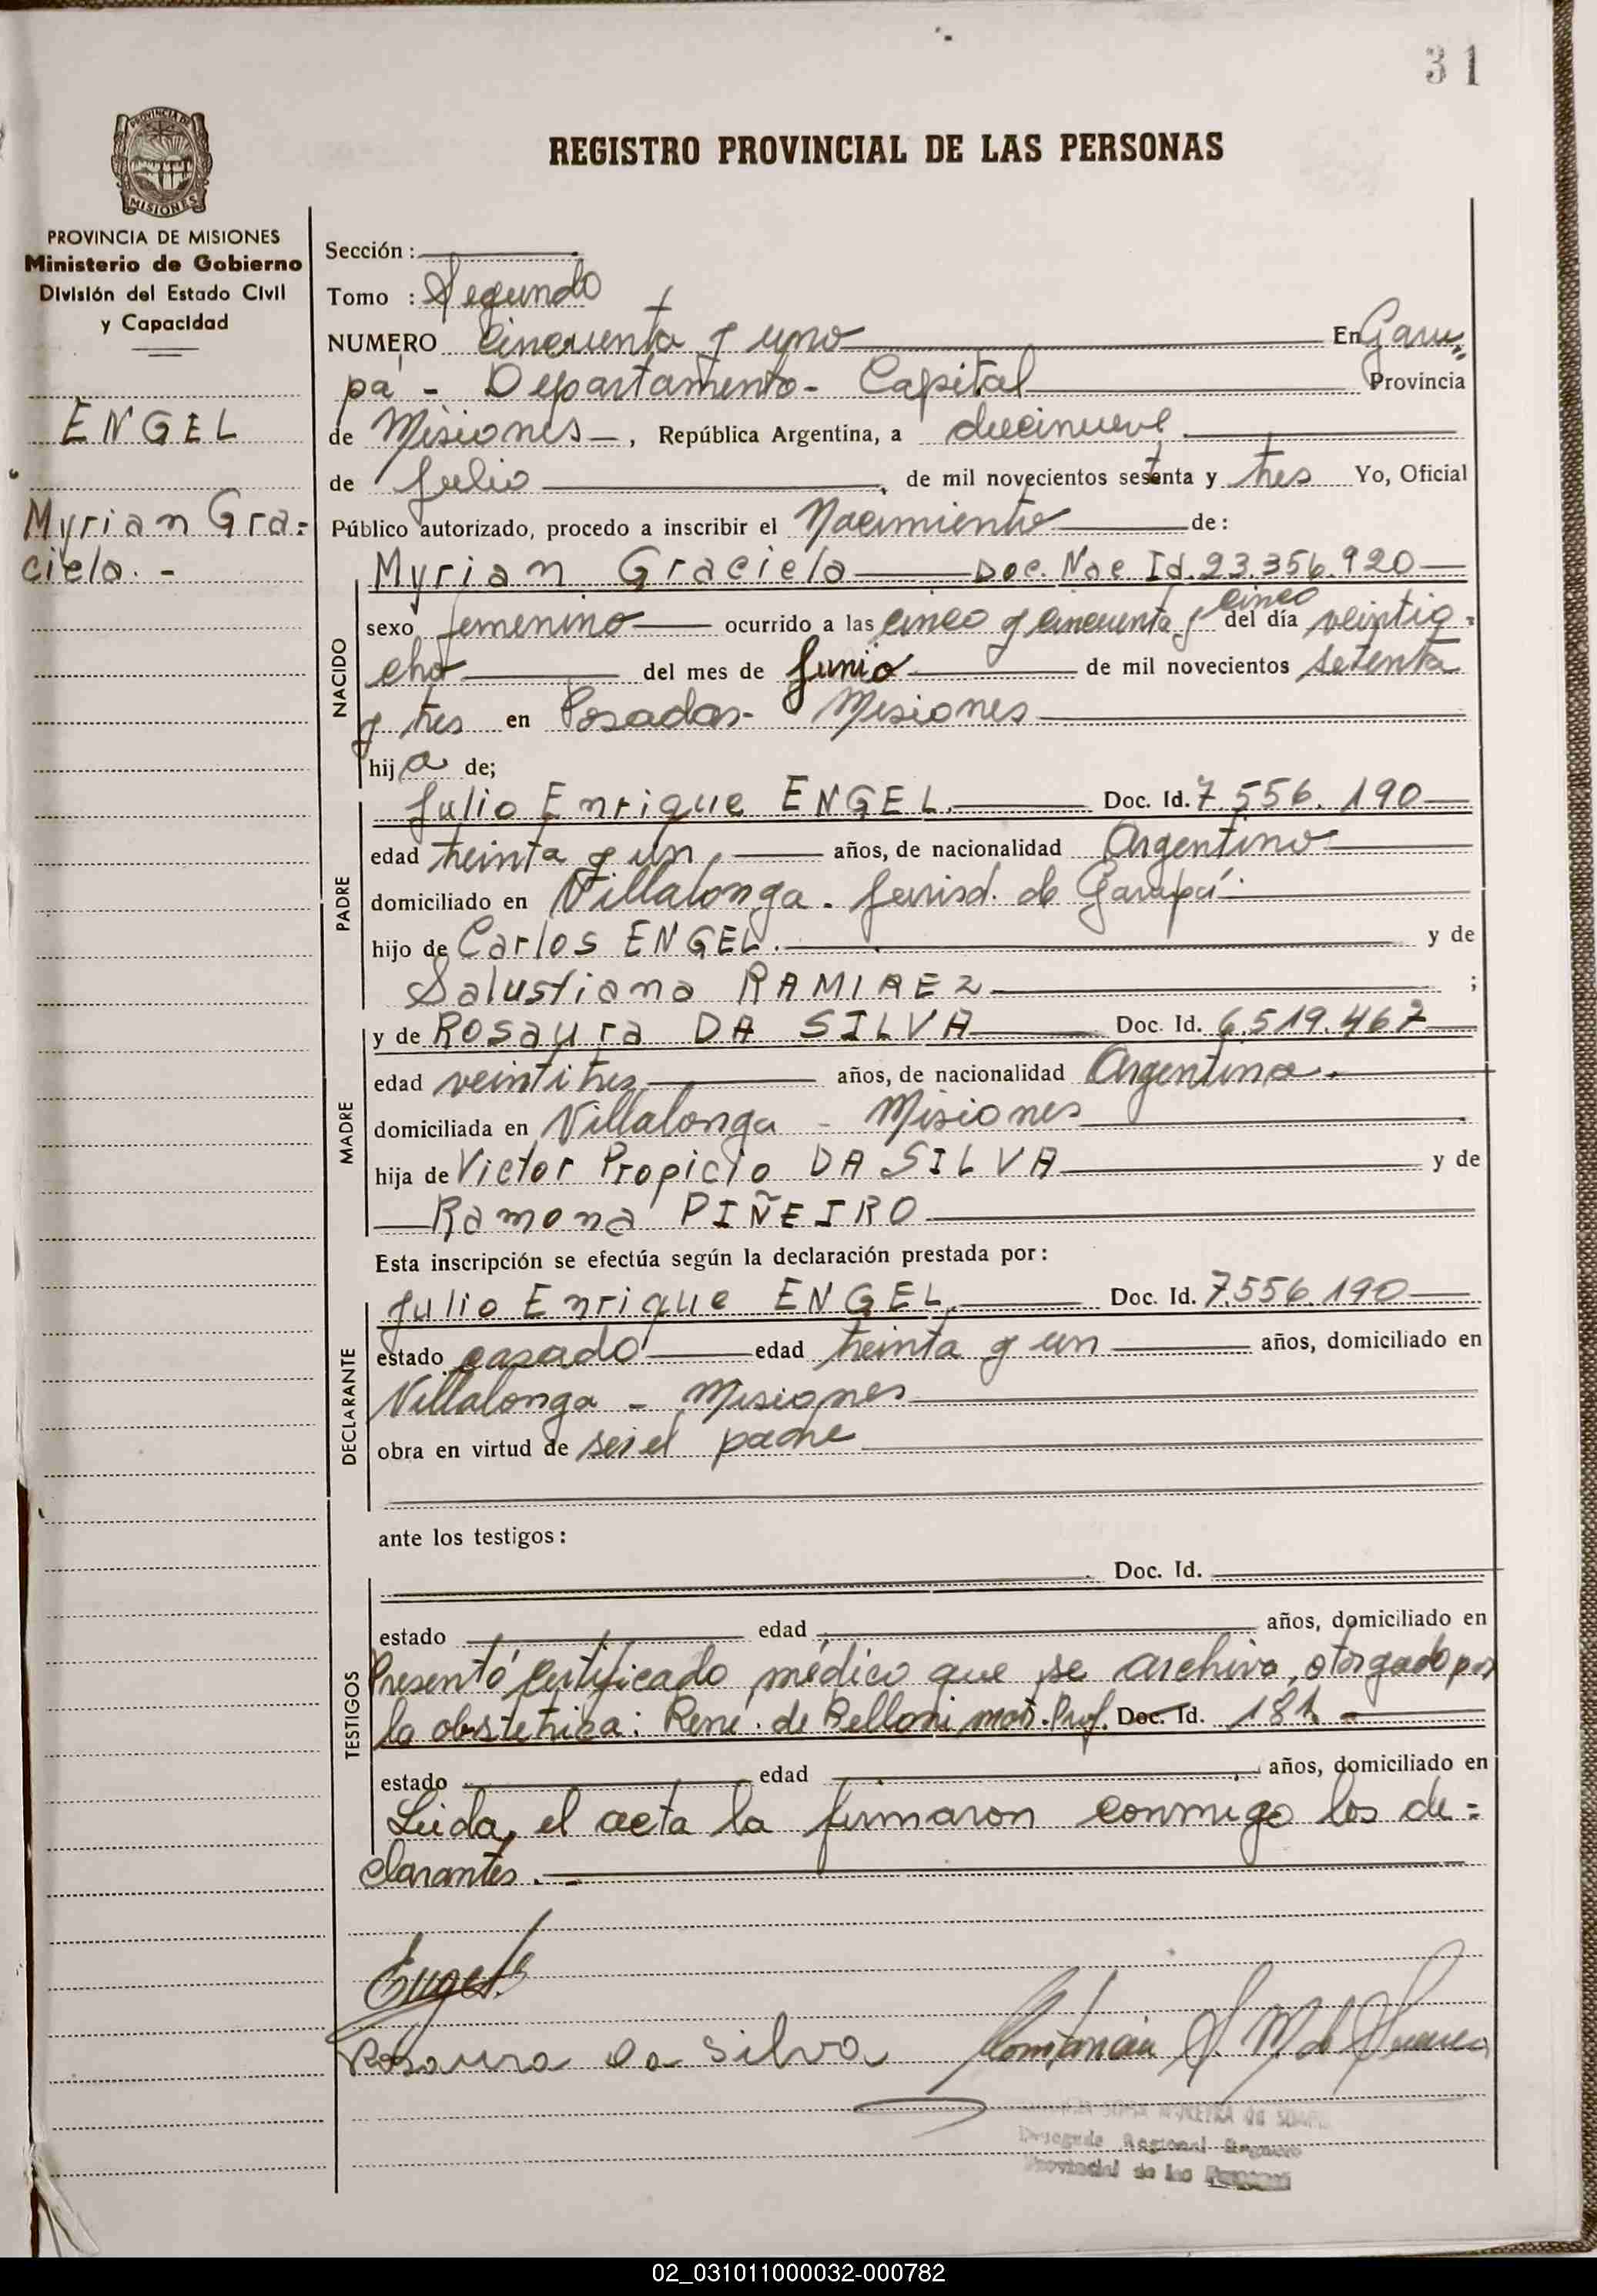 31
REGISTRO PROVINCIAL DE LAS PERSONAS
PROVINCIA DE MISIONES
PROVINCIA DE MISIONES
Ministerio de Gobierno
División del Estado Civil
y Capacidad
ENGEL
Myrian Gra=
ciela. -
Sección :
Tomo : Segundo
NUMERO Cincuenta y uno En Garu
pá - Departamento - Capital Provincia
de Misiones -, República Argentina, a diecinueve
de Julio, de mil novecientos setenta y tres Yo, Oficial
Público autorizado, procedo a inscribir el Nacimiento de:
NACIDO
Myrian Graciela Doc. Nac Id. 23.356.920
sexo femenino ocurrido a las cinco y cincuenta y cinco del día veintio=
cho del mes de Junio de mil novecientos setenta
y tres en Posadas - Misiones
hija de;
PADRE
Julio Enrique ENGEL. Doc. Id. 7.556.190
edad treinta y un años, de nacionalidad Argentino
domiciliado en Villalonga - Jurisd. de Garupá
hijo de Carlos ENGEL. y de
Salustiana RAMIREZ ;
MADRE
y de Rosaura DA SILVA Doc. Id. 6.519.467
edad veintitres años, de nacionalidad Argentina.
domiciliada en Villalonga - Misiones
hija de Victor Propicio DA SILVA y de
Ramona PIÑEIRO
Esta inscripción se efectúa según la declaración prestada por:
DECLARANTE
Julio Enrique ENGEL Doc. Id. 7.556.190
estado casado edad treinta y un años, domiciliado en
Villalonga - Misiones
obra en virtud de ser el padre
ante los testigos:
TESTIGOS
Doc. Id.
estado edad años, domiciliado en
Presentó certificado médico que se archiva, otorgado por
la obstetrica: René de Belloni mat. Prof. Doc. Id. 181. -
estado edad años, domiciliado en
Leida, el acta la firmaron conmigo los de=
clarantes. -
Engel
Rosaura da Silva
Regional
Provincial de las
02_031011000032-000782